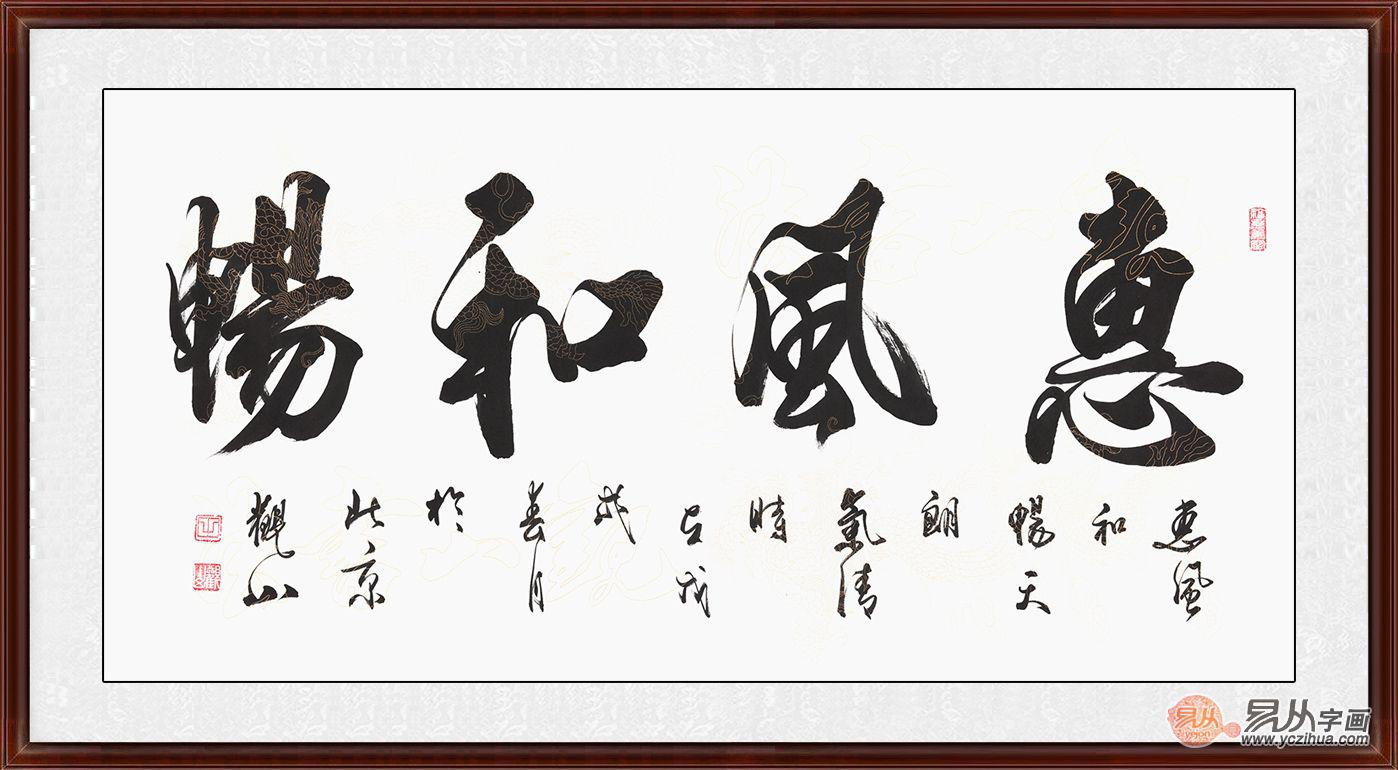 惠風和暢
惠風
和
暢天
朗
氣清
時
在戊
戌
春月
於
北京
觀山
易从
易从字画
www.yczihua.com